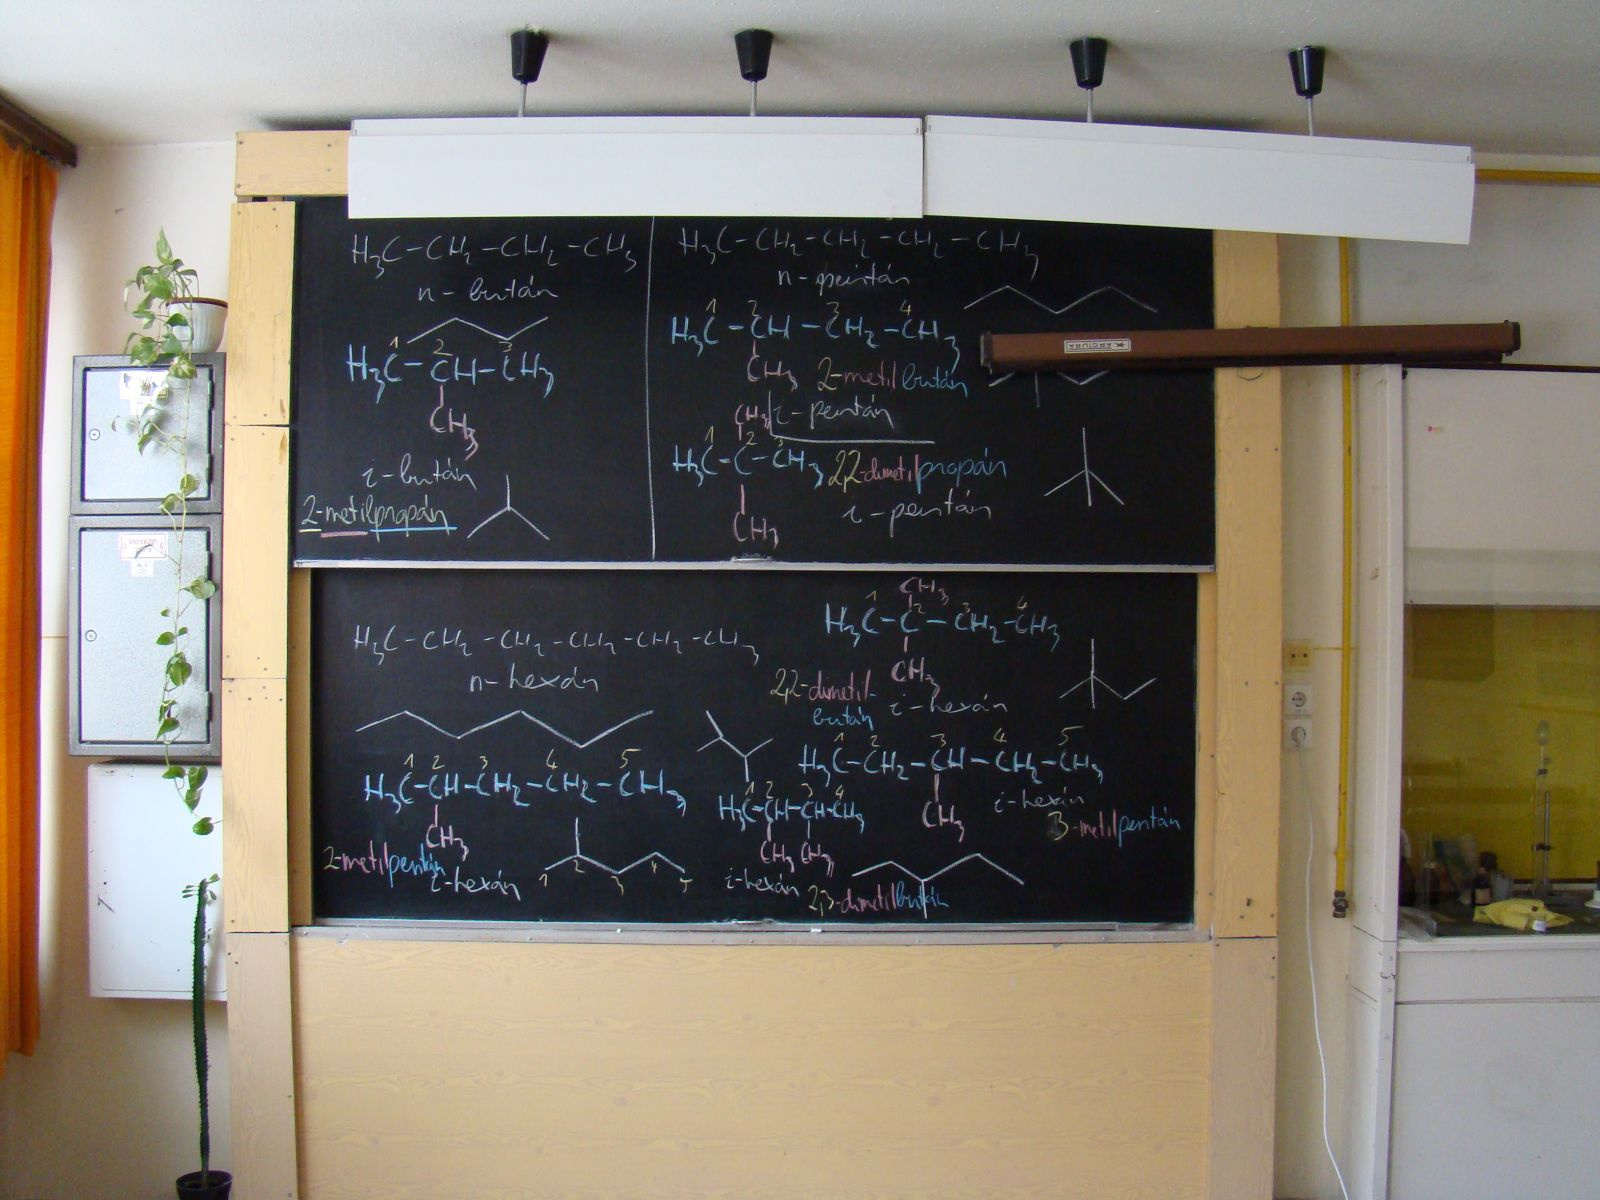 H₃C-CH₂-CH₂-CH₃
n-bután
H₃C-CH-CH₃
1 2 3
CH₃
i-bután
2-metilpropán
H₃C-CH₂-CH₂-CH₂-CH₃
n-pentán
1 2 3 4
H₃C-CH-CH₂-CH₃
CH₃ 2-metilbután
i-pentán
CH₃
1 2 3
H₃C-C-CH₃ 2,2-dimetilpropán
CH₃
i-pentán
H₃C-CH₂-CH₂-CH₂-CH₂-CH₃
n-hexán
1 2 3 4 5
H₃C-CH-CH₂-CH₂-CH₃
CH₃
2-metilpentán
i-hexán
1 2 3 4 5
CH₃
1 2 3 4
H₃C-C-CH₂-CH₃
CH₃
2,2-dimetil-
bután
i-hexán
1 2 3 4 5
H₃C-CH₂-CH-CH₂-CH₃
CH₃
i-hexán
3-metilpentán
1 2 3 4
H₃C-CH-CH-CH₃
CH₃ CH₃
i-hexán
2,3-dimetilbután